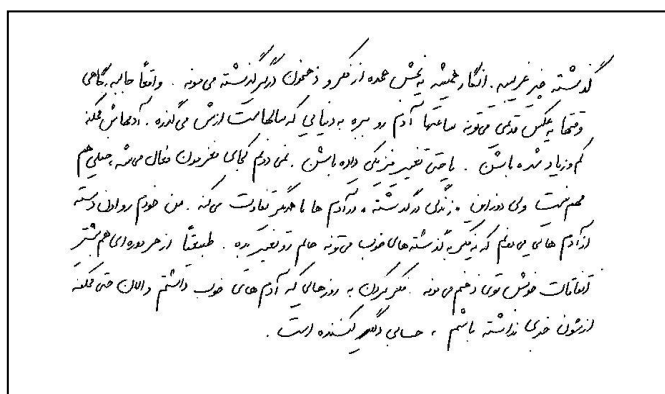 گذشته چیز غریبیه. انگار همیشه یه بخش عمده از فکر و ذهنمون درگیر گذشته می‌مونه. واقعاً جالبه گاهی
وقتها یه عکس قدیمی می‌تونه ساعتها آدم رو ببره به دنیایی که سالهاست ازش می‌گذره. آدمهاش ممکنه
کم و زیاد شده باشن. یا حتی تغییر فیزیکی داده باشن. نمی‌دونم کجای مغزمون فعال می‌شه، خیلی هم
مهم نیست ولی دوز این «زندگی در گذشته» در آدم ها با همدیگر تفاوت می‌کنه. من خودم رو از اون دسته
از آدم هایی می‌دونم که فکر به گذشته های خوب می‌تونه حالم رو تغییر بده. طبیعتاً از هر دوره ای هم بیشتر
اتفاقات خوبش توی ذهنم می‌مونه. فکر کردن به روزهایی که آدم های خوب داشتم و الان حتی ممکنه
ازشون خبری نداشته باشم، حسابی دلگیر کننده است.